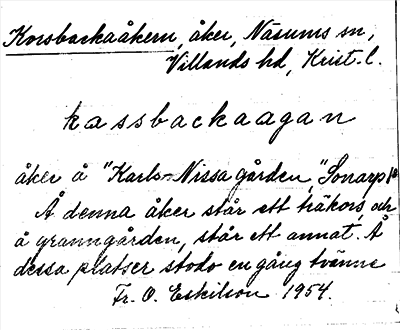 Korsbackaåkern, åker, Näsums sn,
Villands hd, Krist. l.
kassbackaagan
åker å "Karls-Nissagården", Sonarp
Å denna åker står ett träkors, och
å granngården, står ett annat. Å
dessa platser stodo en gång tvänne
Fr. O. Eskilson 1954.